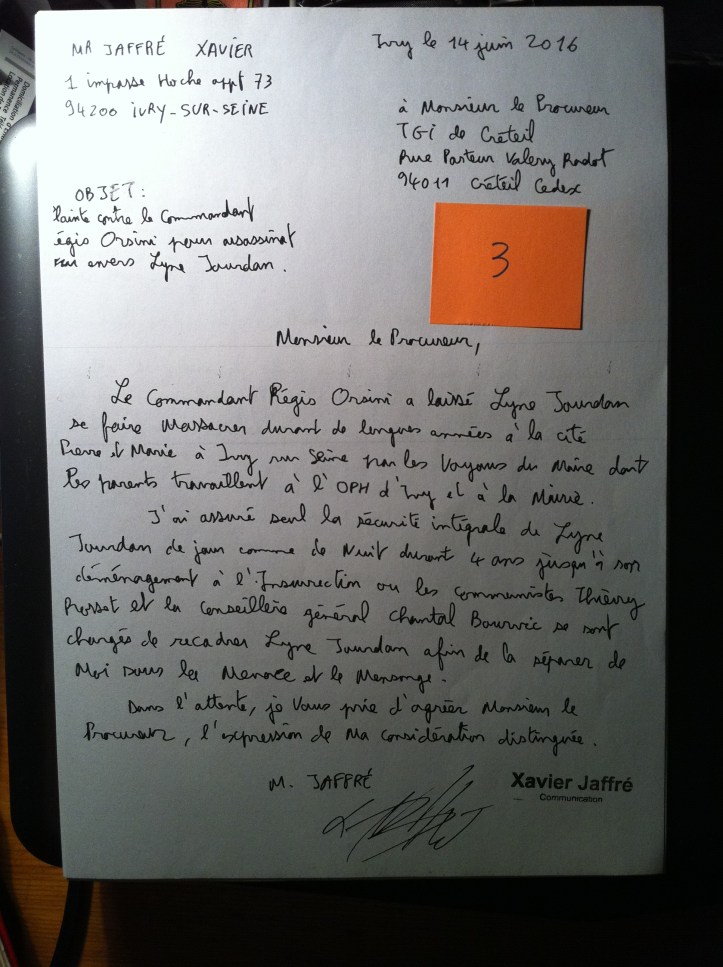 MR JAFFRÉ XAVIER
1 impasse Hoche appt 73
94200 IVRY-SUR-SEINE
Ivry le 14 juin 2016
à Monsieur le Procureur
TGI de Créteil
Rue Pasteur Valery Radot
94011 Créteil Cedex
OBJET:
Plainte contre le Commandant
égis Orsini pour assassinat
envers Lyne Jourdan.
3
Monsieur le Procureur,
Le Commandant Régis Orsini a laissé Lyne Jourdan
se faire Massacrer durant de longues années à la cité
Pierre et Marie à Ivry sur Seine par les Voyous du Maire dont
les parents travaillent à l'OPH d'Ivry et à la Mairie.
J'ai assuré seul la sécurité intégrale de Lyne
Jourdan de jour comme de Nuit durant 4 ans jusqu'à son
déménagement à l'Insurrection ou les communistes Thierry
et la Conseillère général Chantal Bourvic se sont
chargés de recadrer Lyne Jourdan afin de la séparer de
Moi sous la Menace et le Mensonge.
Dans l'attente, je Vous prie d'agréer Monsieur le
Procureur, l'expression de Ma considération distinguée.
M. JAFFRÉ
Xavier Jaffré
Communication